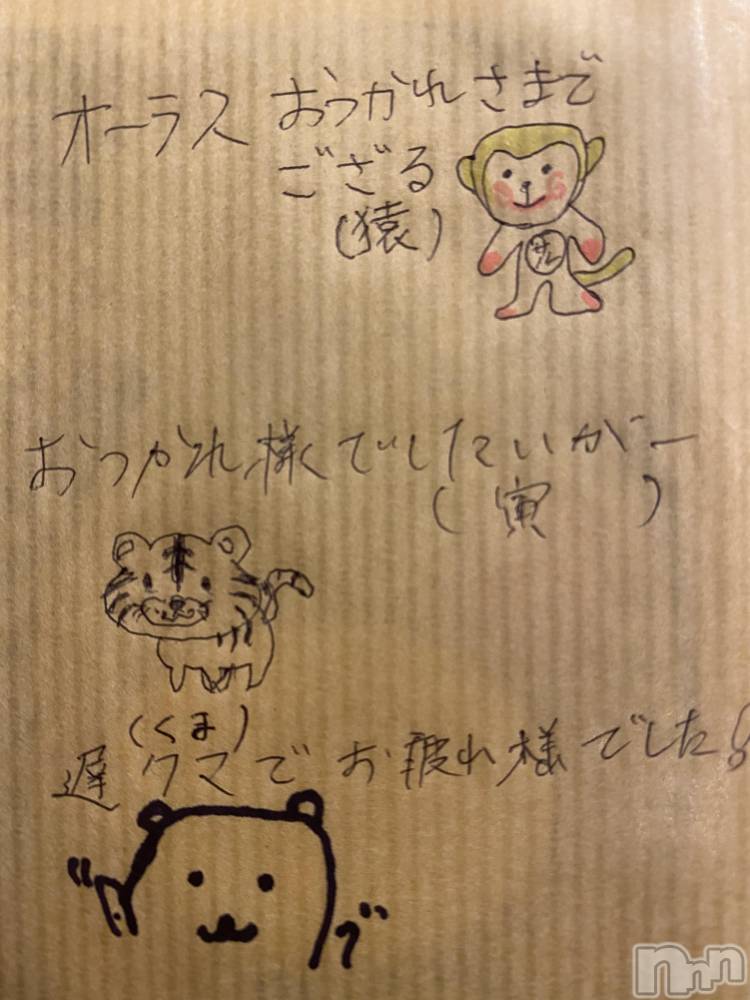 オーラス おつかれさまで
ござる
(猿)
サル
おつかれ様でしたいがー
(寅)
(くま)
遅クマでお疲れ様でした!
nnn